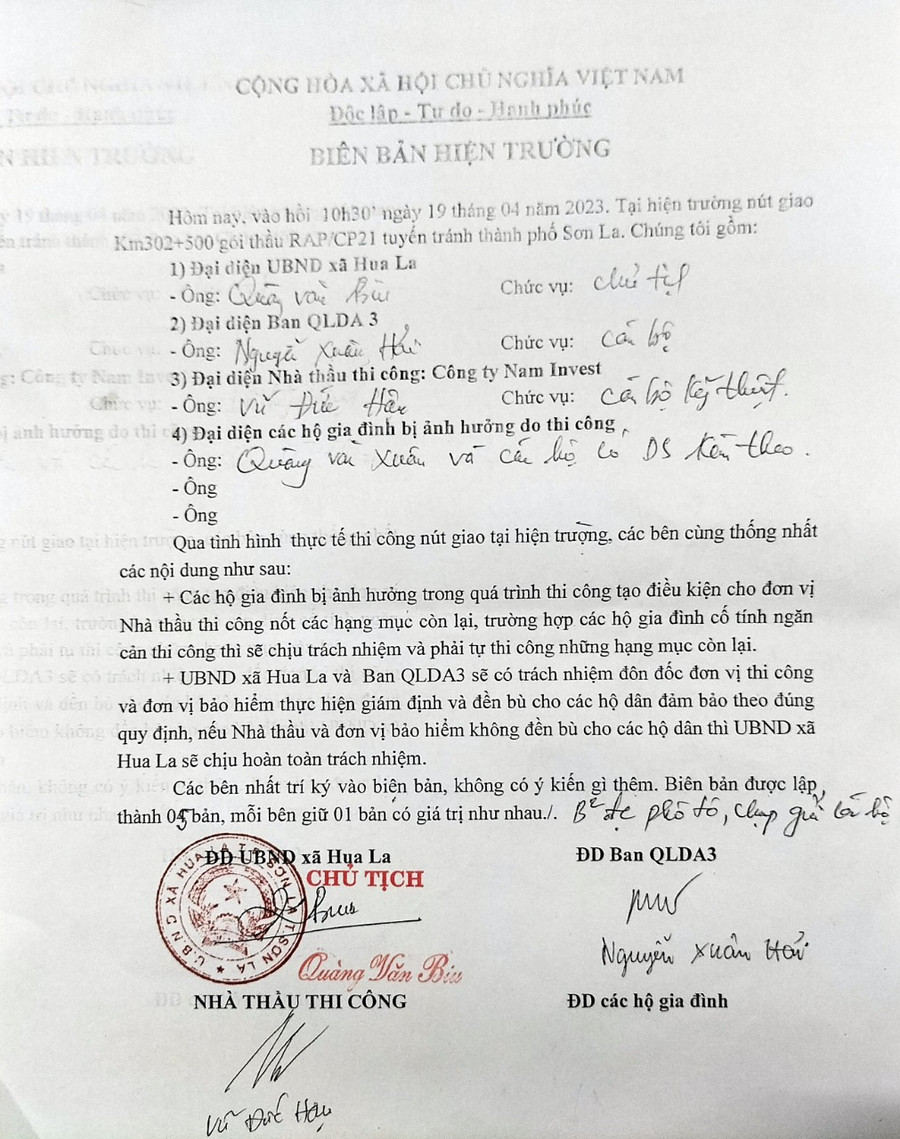 CỘNG HÒA XÃ HỘI CHỦ NGHĨA VIỆT NAM
Độc lập - Tự do - Hạnh phúc
BIÊN BẢN HIỆN TRƯỜNG
Hôm nay, vào hồi 10h30' ngày 19 tháng 04 năm 2023. Tại hiện trường nút giao
Km302+500 gói thầu RAP/CP21 tuyến tránh thành phố Sơn La. Chúng tôi gồm:
1) Đại diện UBND xã Hua La
- Ông: Quàng Văn Bìu Chức vụ: chủ tịch
2) Đại diện Ban QLDA 3
- Ông: Nguyễn Xuân Hải Chức vụ: cán bộ
3) Đại diện Nhà thầu thi công: Công ty Nam Invest
- Ông: Vũ Đức Chức vụ: cán bộ kỹ thuật.
4) Đại diện các hộ gia đình bị ảnh hưởng do thi công
- Ông: Quàng Văn Xuân và các hộ có DS kèm theo.
- Ông
- Ông
Qua tình hình thực tế thi công nút giao tại hiện trường, các bên cùng thống nhất
các nội dung như sau:
+ Các hộ gia đình bị ảnh hưởng trong quá trình thi công tạo điều kiện cho đơn vị
Nhà thầu thi công nốt các hạng mục còn lại, trường hợp các hộ gia đình cố tính ngăn
cản thi công thì sẽ chịu trách nhiệm và phải tự thi công những hạng mục còn lại.
+ UBND xã Hua La và Ban QLDA3 sẽ có trách nhiệm đôn đốc đơn vị thi công
và đơn vị bảo hiểm thực hiện giám định và đền bù cho các hộ dân đảm bảo theo đúng
quy định, nếu Nhà thầu và đơn vị bảo hiểm không đền bù cho các hộ dân thì UBND xã
Hua La sẽ chịu hoàn toàn trách nhiệm.
Các bên nhất trí ký vào biên bản, không có ý kiến gì thêm. Biên bản được lập
thành 05 bản, mỗi bên giữ 01 bản có giá trị như nhau./. phô tô,
ĐD UBND xã Hua La ĐD Ban QLDA3
CHỦ TỊCH
Nguyễn Xuân Hải
Quàng Văn Bìu
NHÀ THẦU THI CÔNG ĐD các hộ gia đình
Vũ Đức